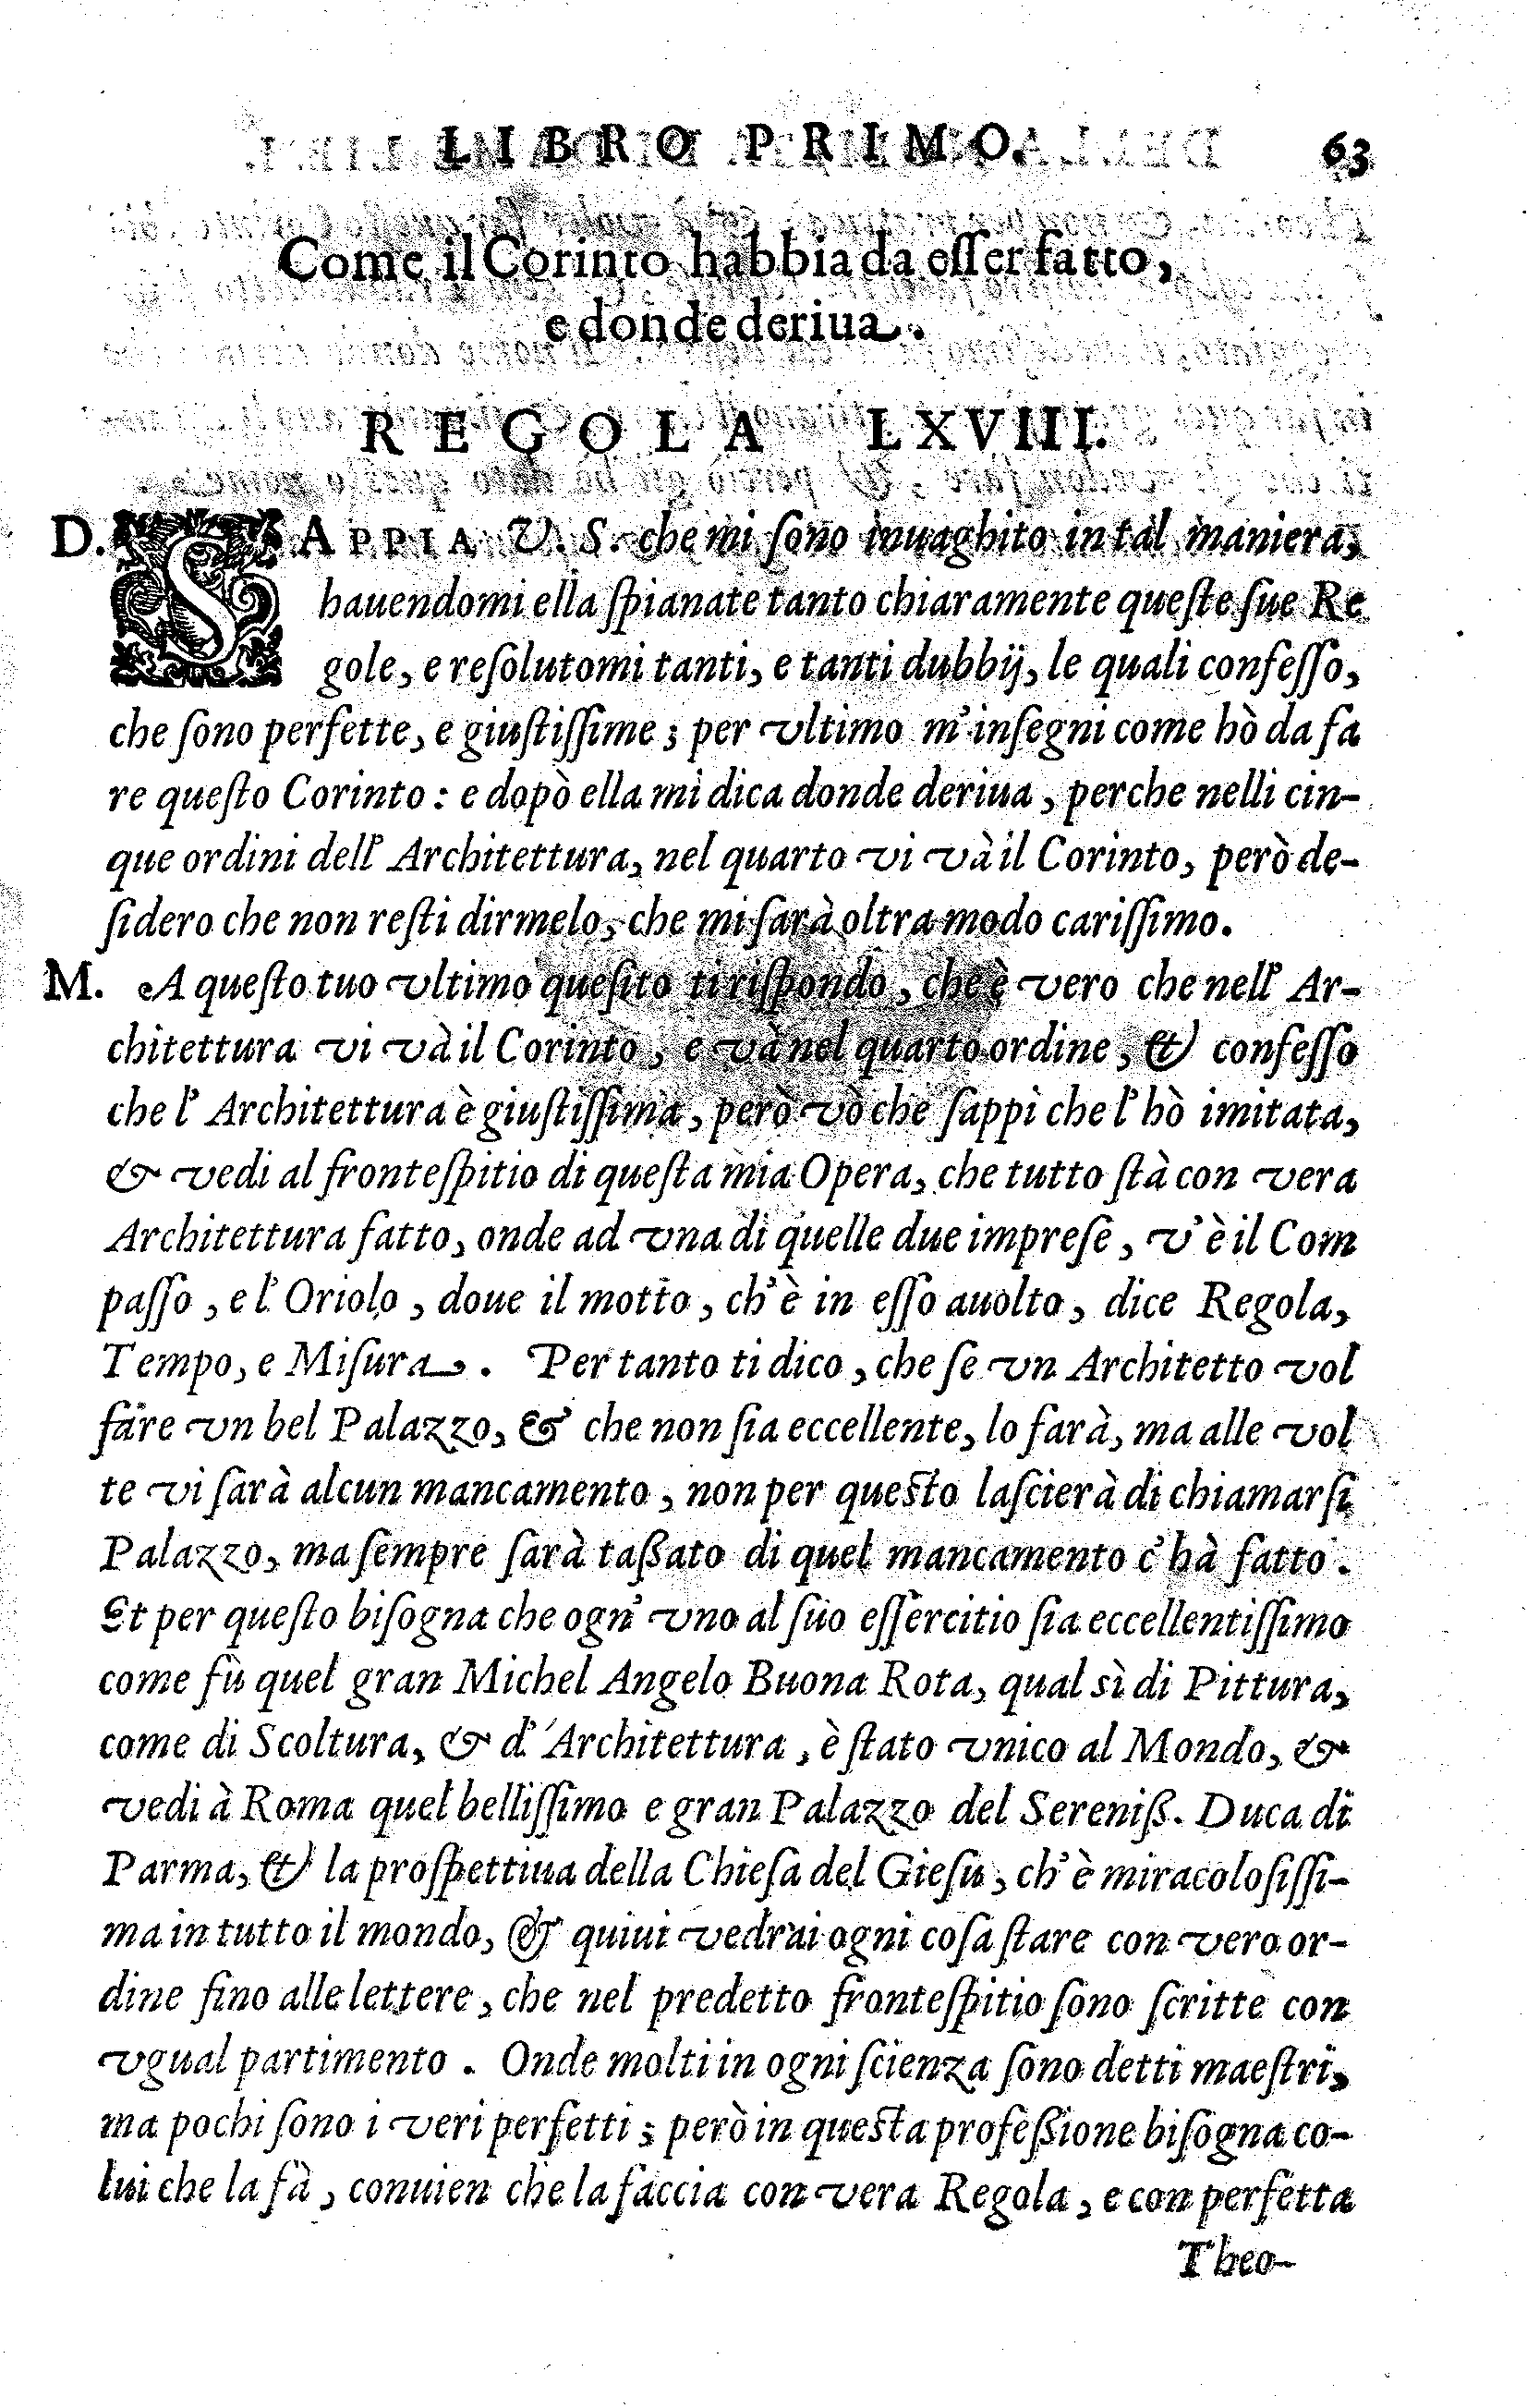 LIBRO PRIMO. 63
Come il Corinto habbia da eſſer fatto,
e donde deriua.
REGOLA LXVIII.
D. SAPPIA V. S. che mi ſono inuaghito in tal maniera,
hauendomi ella ſpianate tanto chiaramente queſte ſue Re
gole, e reſolutomi tanti, e tanti dubbij, le quali confeſſo,
che ſono perfette, e giuſtiſſime; per vltimo m'inſegni come hò da fa
re queſto Corinto: e dopò ella mi dica donde deriua, perche nelli cin-
que ordini dell' Architettura, nel quarto vi và il Corinto, però de-
ſidero che non reſti dirmelo, che mi ſarà oltra modo cariſſimo.
M. A queſto tuo vltimo queſito ti riſpondo, che è vero che nell' Ar-
chitettura vi và il Corinto, e và nel quarto ordine, & confeſſo
che l' Architettura è giuſtiſſima, però vò che ſappi che l' hò imitata,
& vedi al fronteſpitio di queſta mia Opera, che tutto ſtà con vera
Architettura fatto, onde ad vna di quelle due impreſe, v' è il Com
paſſo, e l' Oriolo, doue il motto, ch' è in eſſo auolto, dice Regola,
Tempo, e Miſura. Per tanto ti dico, che ſe vn Architetto vol
fare vn bel Palazzo, & che non ſia eccellente, lo farà, ma alle vol
te vi ſarà alcun mancamento, non per queſto laſcierà di chiamarſi
Palazzo, ma ſempre ſarà taßato di quel mancamento c' hà fatto.
Et per queſto biſogna che ogn' vno al ſuo eſſercitio ſia eccellentiſſimo
come fù quel gran Michel Angelo Buona Rota, qual sì di Pittura,
come di Scoltura, & d' Architettura, è ſtato vnico al Mondo, &
vedi à Roma quel belliſſimo e gran Palazzo del Sereniß. Duca di
Parma, & la proſpettiua della Chieſa del Gieſu, ch' è miracoloſiſſi-
ma in tutto il mondo, & quiui vedrai ogni coſa ſtare con vero or-
dine fino alle lettere, che nel predetto fronteſpitio ſono ſcritte con
vgual partimento. Onde molti in ogni ſcienza ſono detti maeſtri,
ma pochi ſono i veri perfetti; però in queſta profeßione biſogna co-
lui che la fà, conuien che la faccia con vera Regola, e con perfetta
Theo-